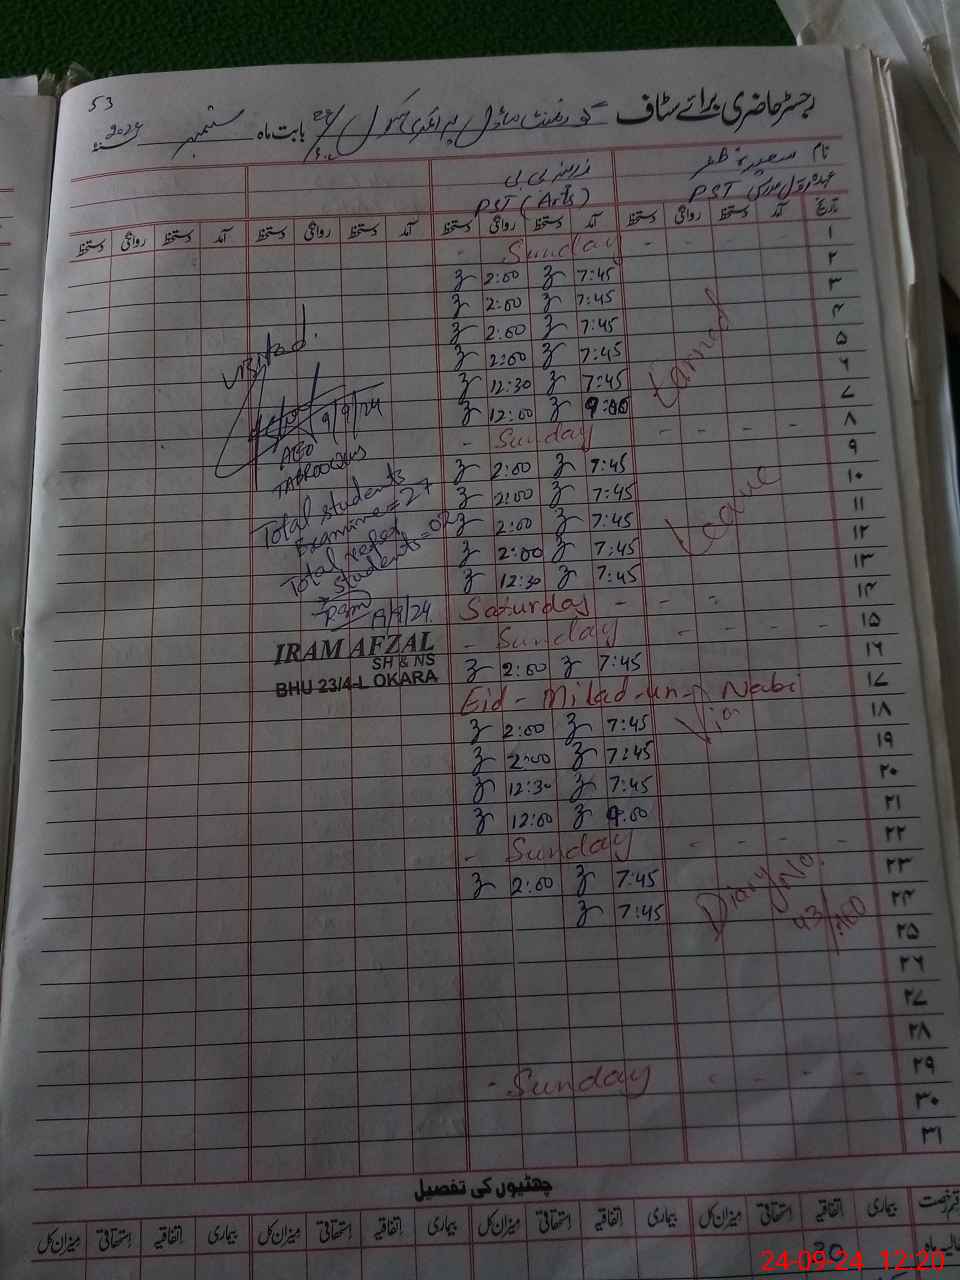 53
رجسٹر حاضری برائے سٹاف گورنمنٹ ماڈل پرائمری سکول بابت ماہ ستمبر 2024
نام سعیدہ
عہدہ PST PST (Arts)
تاریخ آمد دستخط روانگی دستخط آمد دستخط روانگی دستخط آمد دستخط روانگی دستخط آمد دستخط روانگی دستخط
۱ - - - - Sunday -
۲ 7:45 2:00
۳ 7:45 2:00
۴ 7:45 2:00
۵ 7:45 2:00
۶ 7:45 12:30
۷ 9:00 12:00
۸ - - - - Sunday -
۹ 7:45 2:00
۱۰ 7:45 2:00
۱۱ 7:45 2:00
۱۲ 7:45 2:00
۱۳ 7:45 12:30
۱۴ Saturday - - -
۱۵ - - - - Sunday -
۱۶ 7:45 2:00
۱۷ Eid - Milad-un- Nabi
۱۸ 7:45 2:00
۱۹ 7:45 2:00
۲۰ 7:45 12:30
۲۱ 9:00 12:00
۲۲ - - - - Sunday -
۲۳ 7:45 2:00
۲۴ 7:45
۲۵
۲۶
۲۷
۲۸
۲۹ - - - - Sunday -
۳۰
۳۱
Earned
Leave
Via
Diary No.
43/160
visited.
9/9/24
AEO
Total students
Examine = 27
Total refer
students = 02
IRAM AFZAL
SH & NS
BHU 23/4-L OKARA
چھٹیوں کی تفصیل
قسم رخصت بیماری اتفاقیہ استحقاقی میزان کل بیماری اتفاقیہ استحقاقی میزان کل بیماری اتفاقیہ استحقاقی میزان کل بیماری اتفاقیہ استحقاقی میزان کل
ماہ 30
24-09-24 12:20